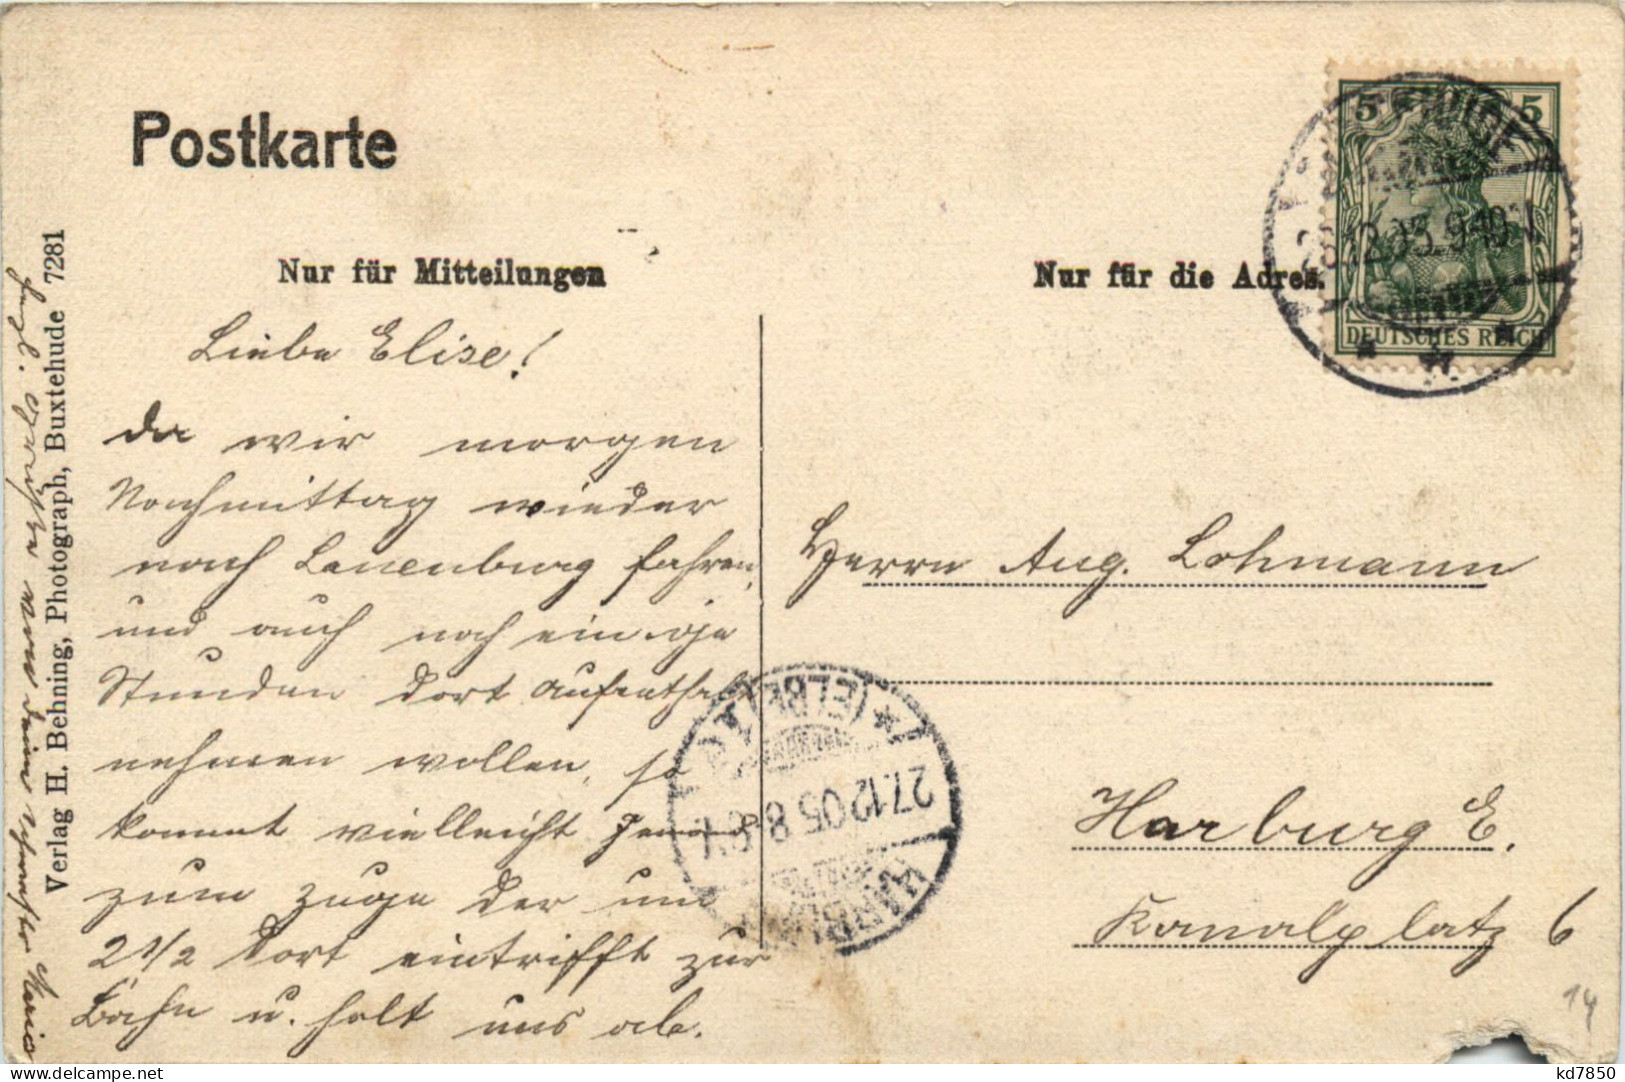 Postkarte
Nur für Mitteilungen
Nur für die Adres.
5 5
DEUTSCHES REICH
12.05.9-10 V
Liebe Elise!
Da wir morgen
Nachmittag wieder
nach Lauenburg fahren,
und auch noch einige
Stunden dort Aufenthalt
nehmen wollen, so
kommt vielleicht Jemand
zum Zuge der um
2 1/2 dort eintrifft zur
Bahn u. holt uns ab.
Herzl. Grüße von
Verlag H. Behning, Photograph, Buxtehude 7281
Herrn Aug. Lohmann
Harburg E.
Kanalplatz 6
HARBURG
(ELBE)
27.12.05.8
14
kd7850